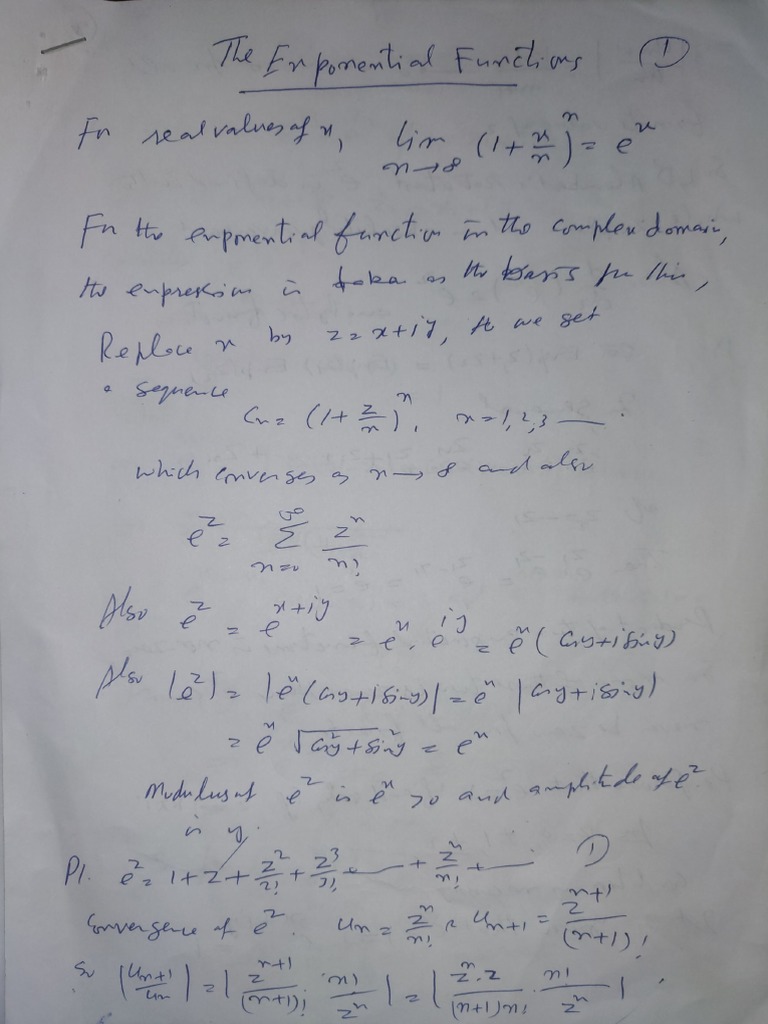 The Exponential Functions ①
For real values of x, lim n→∞ (1+x/n)^n = e^x
For the exponential function in the complex domain,
the expression is taken as the basis for this,
Replace x by z = x+iy, we get
a sequence
Cn = (1+z/n)^n, n=1,2,3 — .
which converges as n→∞ and also
e^z = ∑_{n=0}^{∞} z^n/n!
Also e^z = e^{x+iy} = e^x. e^{iy} = e^x (cos y+i sin y)
Also |e^z| = |e^x (cos y+i sin y)| = e^x |cos y+i sin y|
= e^x √(cos²y+sin²y) = e^x
Modulus of e^z is e^x >0 and amplitude of e^z
is y.
P1. e^z = 1+z+z²/2!+z³/3!+ — + z^n/n! + — ①
Convergence of e^z. Un = z^n/n! & Un+1 = z^{n+1}/(n+1)!
So |Un+1/Un| = |z^{n+1}/(n+1)! . n!/z^n| = |z^n.z/(n+1)n! . n!/z^n| .